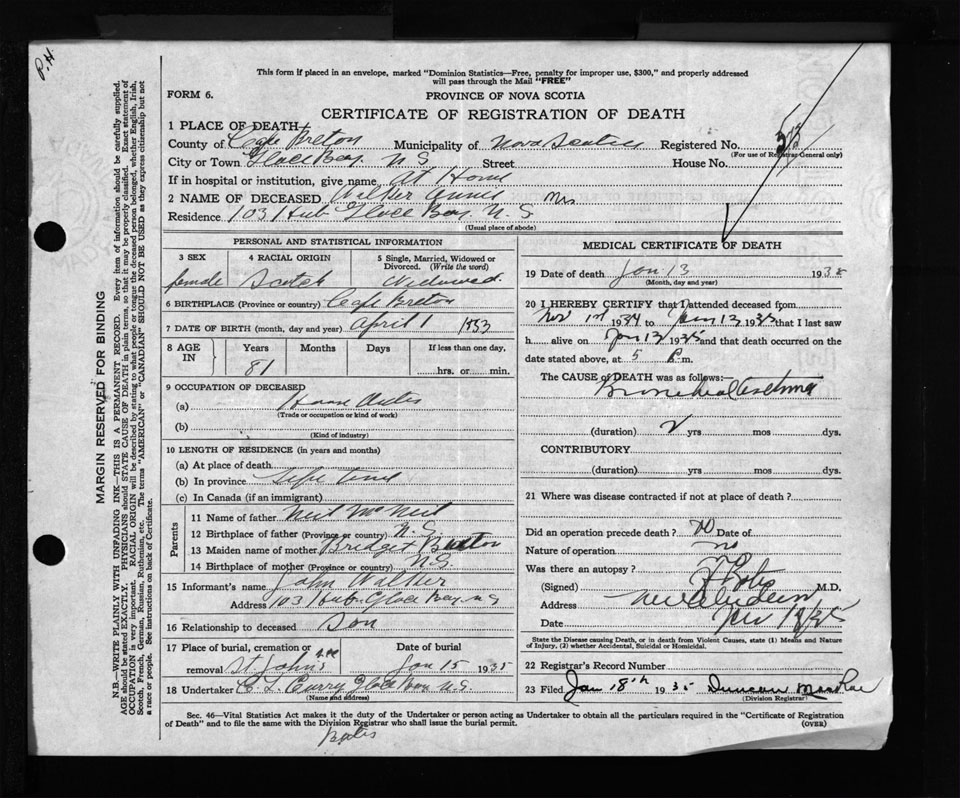 P.H.
This form if placed in an envelope, marked "Dominion Statistics—Free, penalty for improper use, $300," and properly addressed
will pass through the Mail "FREE"
FORM 6.
PROVINCE OF NOVA SCOTIA
CERTIFICATE OF REGISTRATION OF DEATH
1 PLACE OF DEATH
County of Cape Breton Municipality of Nova Scotia Registered No.
(For use of Registrar General only)
City or Town Glace Bay. N S Street House No.
If in hospital or institution, give name At Home
2 NAME OF DECEASED Walker Annie Mrs
Residence 103 Hub Glace Bay N. S
(Usual place of abode)
PERSONAL AND STATISTICAL INFORMATION
3 SEX 4 RACIAL ORIGIN 5 Single, Married, Widowed or
Divorced. (Write the word)
female Scotch Widowed.
6 BIRTHPLACE (Province or country) Cape Breton
7 DATE OF BIRTH (month, day and year) April 1 1853
8 AGE IN Years Months Days If less than one day,
81 hrs. or min.
9 OCCUPATION OF DECEASED
(a)
(Trade or occupation or kind of work)
(b)
(Kind of industry)
10 LENGTH OF RESIDENCE (in years and months)
(a) At place of death
(b) In province Life time
(c) In Canada (if an immigrant)
Parents
11 Name of father Neil McNeil
12 Birthplace of father (Province or country) N. S
13 Maiden name of mother Bridget
14 Birthplace of mother (Province or country) N S.
15 Informant's name John Walker
Address 103 Hub Glace Bay N S
16 Relationship to deceased Son
17 Place of burial, cremation or Date of burial
removal St. John's Jan 15 1935
18 Undertaker C. L. Curry Glace Bay N. S
(Name and address)
MEDICAL CERTIFICATE OF DEATH
19 Date of death Jan 13 1935
(Month, day and year)
20 I HEREBY CERTIFY that I attended deceased from
Nov 1st 1934 to Jan 13 1935 that I last saw
h alive on Jan 13 1935 and that death occurred on the
date stated above, at 5 P. m.
The CAUSE of DEATH was as follows:
Bronchial asthma
(duration) 2 yrs mos dys.
CONTRIBUTORY
(duration) yrs mos dys.
21 Where was disease contracted if not at place of death?
Did an operation precede death? no Date of
Nature of operation no
Was there an autopsy? no
(Signed) M.D.
Address New Aberdeen
Date
State the Disease causing Death, or in death from Violent Causes, state (1) Means and Nature
of Injury, (2) whether Accidental, Suicidal or Homicidal.
22 Registrar's Record Number
23 Filed Jan 18th 1935 Duncan MacRae
(Division Registrar)
Sec. 46—Vital Statistics Act makes it the duty of the Undertaker or person acting as Undertaker to obtain all the particulars required in the "Certificate of Registration
of Death" and to file the same with the Division Registrar who shall issue the burial permit. (OVER)
MARGIN RESERVED FOR BINDING
N.B.—WRITE PLAINLY WITH UNFADING INK—THIS IS A PERMANENT RECORD. Every item of information should be carefully supplied.
AGE should be stated EXACTLY. PHYSICIANS should STATE CAUSE OF DEATH in plain terms, so that it may be properly classified. Exact statement of
OCCUPATION is very important. RACIAL ORIGIN will be described by stating to what people or tongue the deceased person belonged, whether English, Irish,
Scotch, French, German, Russian, Ruthenian, etc. The terms "AMERICAN" or "CANADIAN" SHOULD NOT BE USED as they express citizenship but not
a race or people. See instructions on back of Certificate.